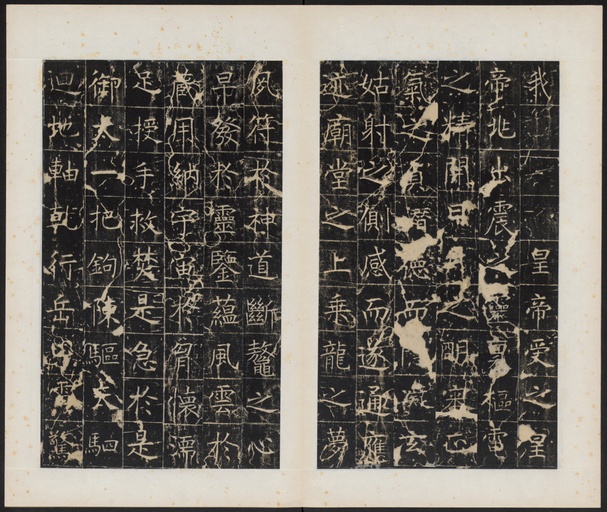 我皇帝受之皇
帝兆出震之靈樞電
之精開日月之明
氣之潛德而玄
姑射之側感而遂通應
廟堂之上乘龍之夢
夙符於神道斷鼇之心
早發於靈鑒蘊風雲於
藏用納宇宙於胷懷濡
足授手救焚是急於是
御太一把鉤陳驅天駟
迴地軸乾行岳驚